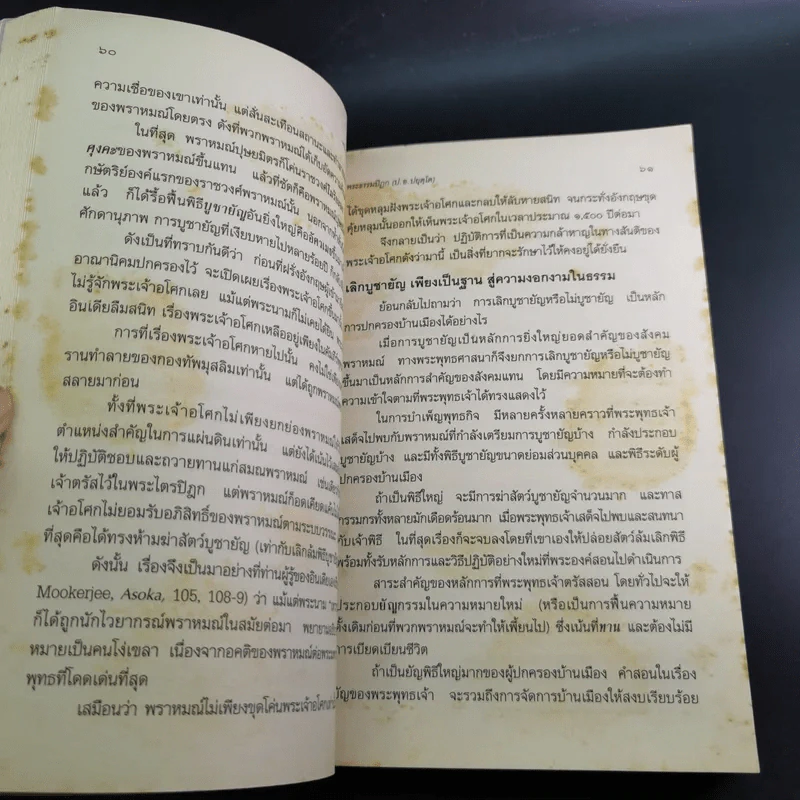 ๖๐
ความเชื่อของเขาเท่านั้น แต่สั่นสะเทือนสถานะและ
ของพราหมณ์โดยตรง ดังที่พวกพราหมณ์ได้เก็บอัด
ในที่สุด พราหมณ์ปุษยมิตรก็โค่นราชวงศ์
ศุงคะของพราหมณ์ขึ้นแทน แล้วที่ชัดก็คือพราหมณ์
กษัตริย์องค์แรกของราชวงศ์พราหมณ์นั้น นอกจาก
แล้ว ก็ได้รื้อฟื้นพิธีบูชายัญอันยิ่งใหญ่คืออัศวเมธขึ้น
ศักดานุภาพ การบูชายัญที่เงียบหายไปหลายร้อยปี ก็
ดังเป็นที่ทราบกันดีว่า ก่อนที่ฝรั่งอังกฤษผู้เข้า
อาณานิคมปกครองไว้ จะเปิดเผยเรื่องพระเจ้าอโศกขึ้น
ไม่รู้จักพระเจ้าอโศกเลย แม้แต่พระนามก็ไม่เคยได้ยิน
อินเดียลืมสนิท เรื่องพระเจ้าอโศกเหลืออยู่เพียงใน
การที่เรื่องพระเจ้าอโศกหายไปนั้น คงไม่ใช่
รานทำลายของกองทัพมุสลิมเท่านั้น แต่ได้ถูกพราหมณ์
สลายมาก่อน
ทั้งที่พระเจ้าอโศกไม่เพียงยกย่องพราหมณ์
ตำแหน่งสำคัญในการแผ่นดินเท่านั้น แต่ยังได้เน้น
ให้ปฏิบัติชอบและถวายทานแก่สมณพราหมณ์ เช่น
เจ้าตรัสไว้ในพระไตรปิฎก แต่พราหมณ์ก็อดเคียดแค้น
เจ้าอโศกไม่ยอมรับอภิสิทธิ์ของพราหมณ์ตามระบบวรรณะ
ที่สุดคือได้ทรงห้ามฆ่าสัตว์บูชายัญ (เท่ากับเลิกล้มพิธีบูชายัญ
ดังนั้น เรื่องจึงเป็นมาอย่างที่ท่านผู้รู้ของอินเดีย
Mookerjee, Asoka, 105, 108-9) ว่า แม้แต่พระนาม
ก็ได้ถูกนักไวยากรณ์พราหมณ์ในสมัยต่อมา พยายาม
หมายเป็นคนโง่เขลา เนื่องจากอคติของพราหมณ์ต่อ
พุทธที่โดดเด่นที่สุด
เสมือนว่า พราหมณ์ไม่เพียงขุดโค่นพระเจ้าอโศก
พระธรรมปิฎก (ป. อ. ปยุตฺโต)
๖๑
ได้ขุดหลุมฝังพระเจ้าอโศกและกลบให้ลับหายสนิท จนกระทั่งอังกฤษขุด
คุ้ยหลุมนั้นออกให้เห็นพระเจ้าอโศกในเวลาประมาณ ๑,๕๐๐ ปีต่อมา
จึงกลายเป็นว่า ปฏิบัติการที่เป็นความกล้าหาญในทางสันติของ
พระเจ้าอโศกดังว่ามานี้ เป็นสิ่งที่ยากจะรักษาไว้ให้คงอยู่ได้ยั่งยืน
เลิกบูชายัญ เพียงเป็นฐาน สู่ความงอกงามในธรรม
ย้อนกลับไปถามว่า การเลิกบูชายัญหรือไม่บูชายัญ เป็นหลัก
การปกครองบ้านเมืองได้อย่างไร
เมื่อการบูชายัญเป็นหลักการยิ่งใหญ่ยอดสำคัญของสังคม
พราหมณ์ ทางพระพุทธศาสนาก็จึงยกการเลิกบูชายัญหรือไม่บูชายัญ
ขึ้นมาเป็นหลักการสำคัญของสังคมแทน โดยมีความหมายที่จะต้องทำ
ความเข้าใจตามที่พระพุทธเจ้าได้ทรงแสดงไว้
ในการบำเพ็ญพุทธกิจ มีหลายครั้งหลายคราวที่พระพุทธเจ้า
เสด็จไปพบกับพราหมณ์ที่กำลังเตรียมการบูชายัญบ้าง กำลังประกอบ
บูชายัญบ้าง และมีทั้งพิธีบูชายัญขนาดย่อมส่วนบุคคล และพิธีระดับผู้
ปกครองบ้านเมือง
ถ้าเป็นพิธีใหญ่ จะมีการฆ่าสัตว์บูชายัญจำนวนมาก และทาส
กรรมกรทั้งหลายมักเดือดร้อนมาก เมื่อพระพุทธเจ้าเสด็จไปพบและสนทนา
กับเจ้าพิธี ในที่สุดก็จะจบลงโดยที่เขาเองให้ปล่อยสัตว์ล้มเลิกพิธี
พร้อมทั้งรับหลักการและวิธีปฏิบัติอย่างใหม่ที่พระองค์สอนไปดำเนินการ
สาระสำคัญของหลักการที่พระพุทธเจ้าตรัสสอน โดยทั่วไปจะให้
ประกอบยัญกรรมในความหมายใหม่ (หรือเป็นการฟื้นความหมาย
ดั้งเดิมก่อนที่พวกพราหมณ์จะทำให้เพี้ยนไป) ซึ่งเน้นที่ทาน และต้องไม่มี
การเบียดเบียนชีวิต
ถ้าเป็นยัญพิธีใหญ่มากของผู้ปกครองบ้านเมือง คำสอนในเรื่อง
ยัญของพระพุทธเจ้า จะรวมถึงการจัดการบ้านเมืองให้สงบเรียบร้อย